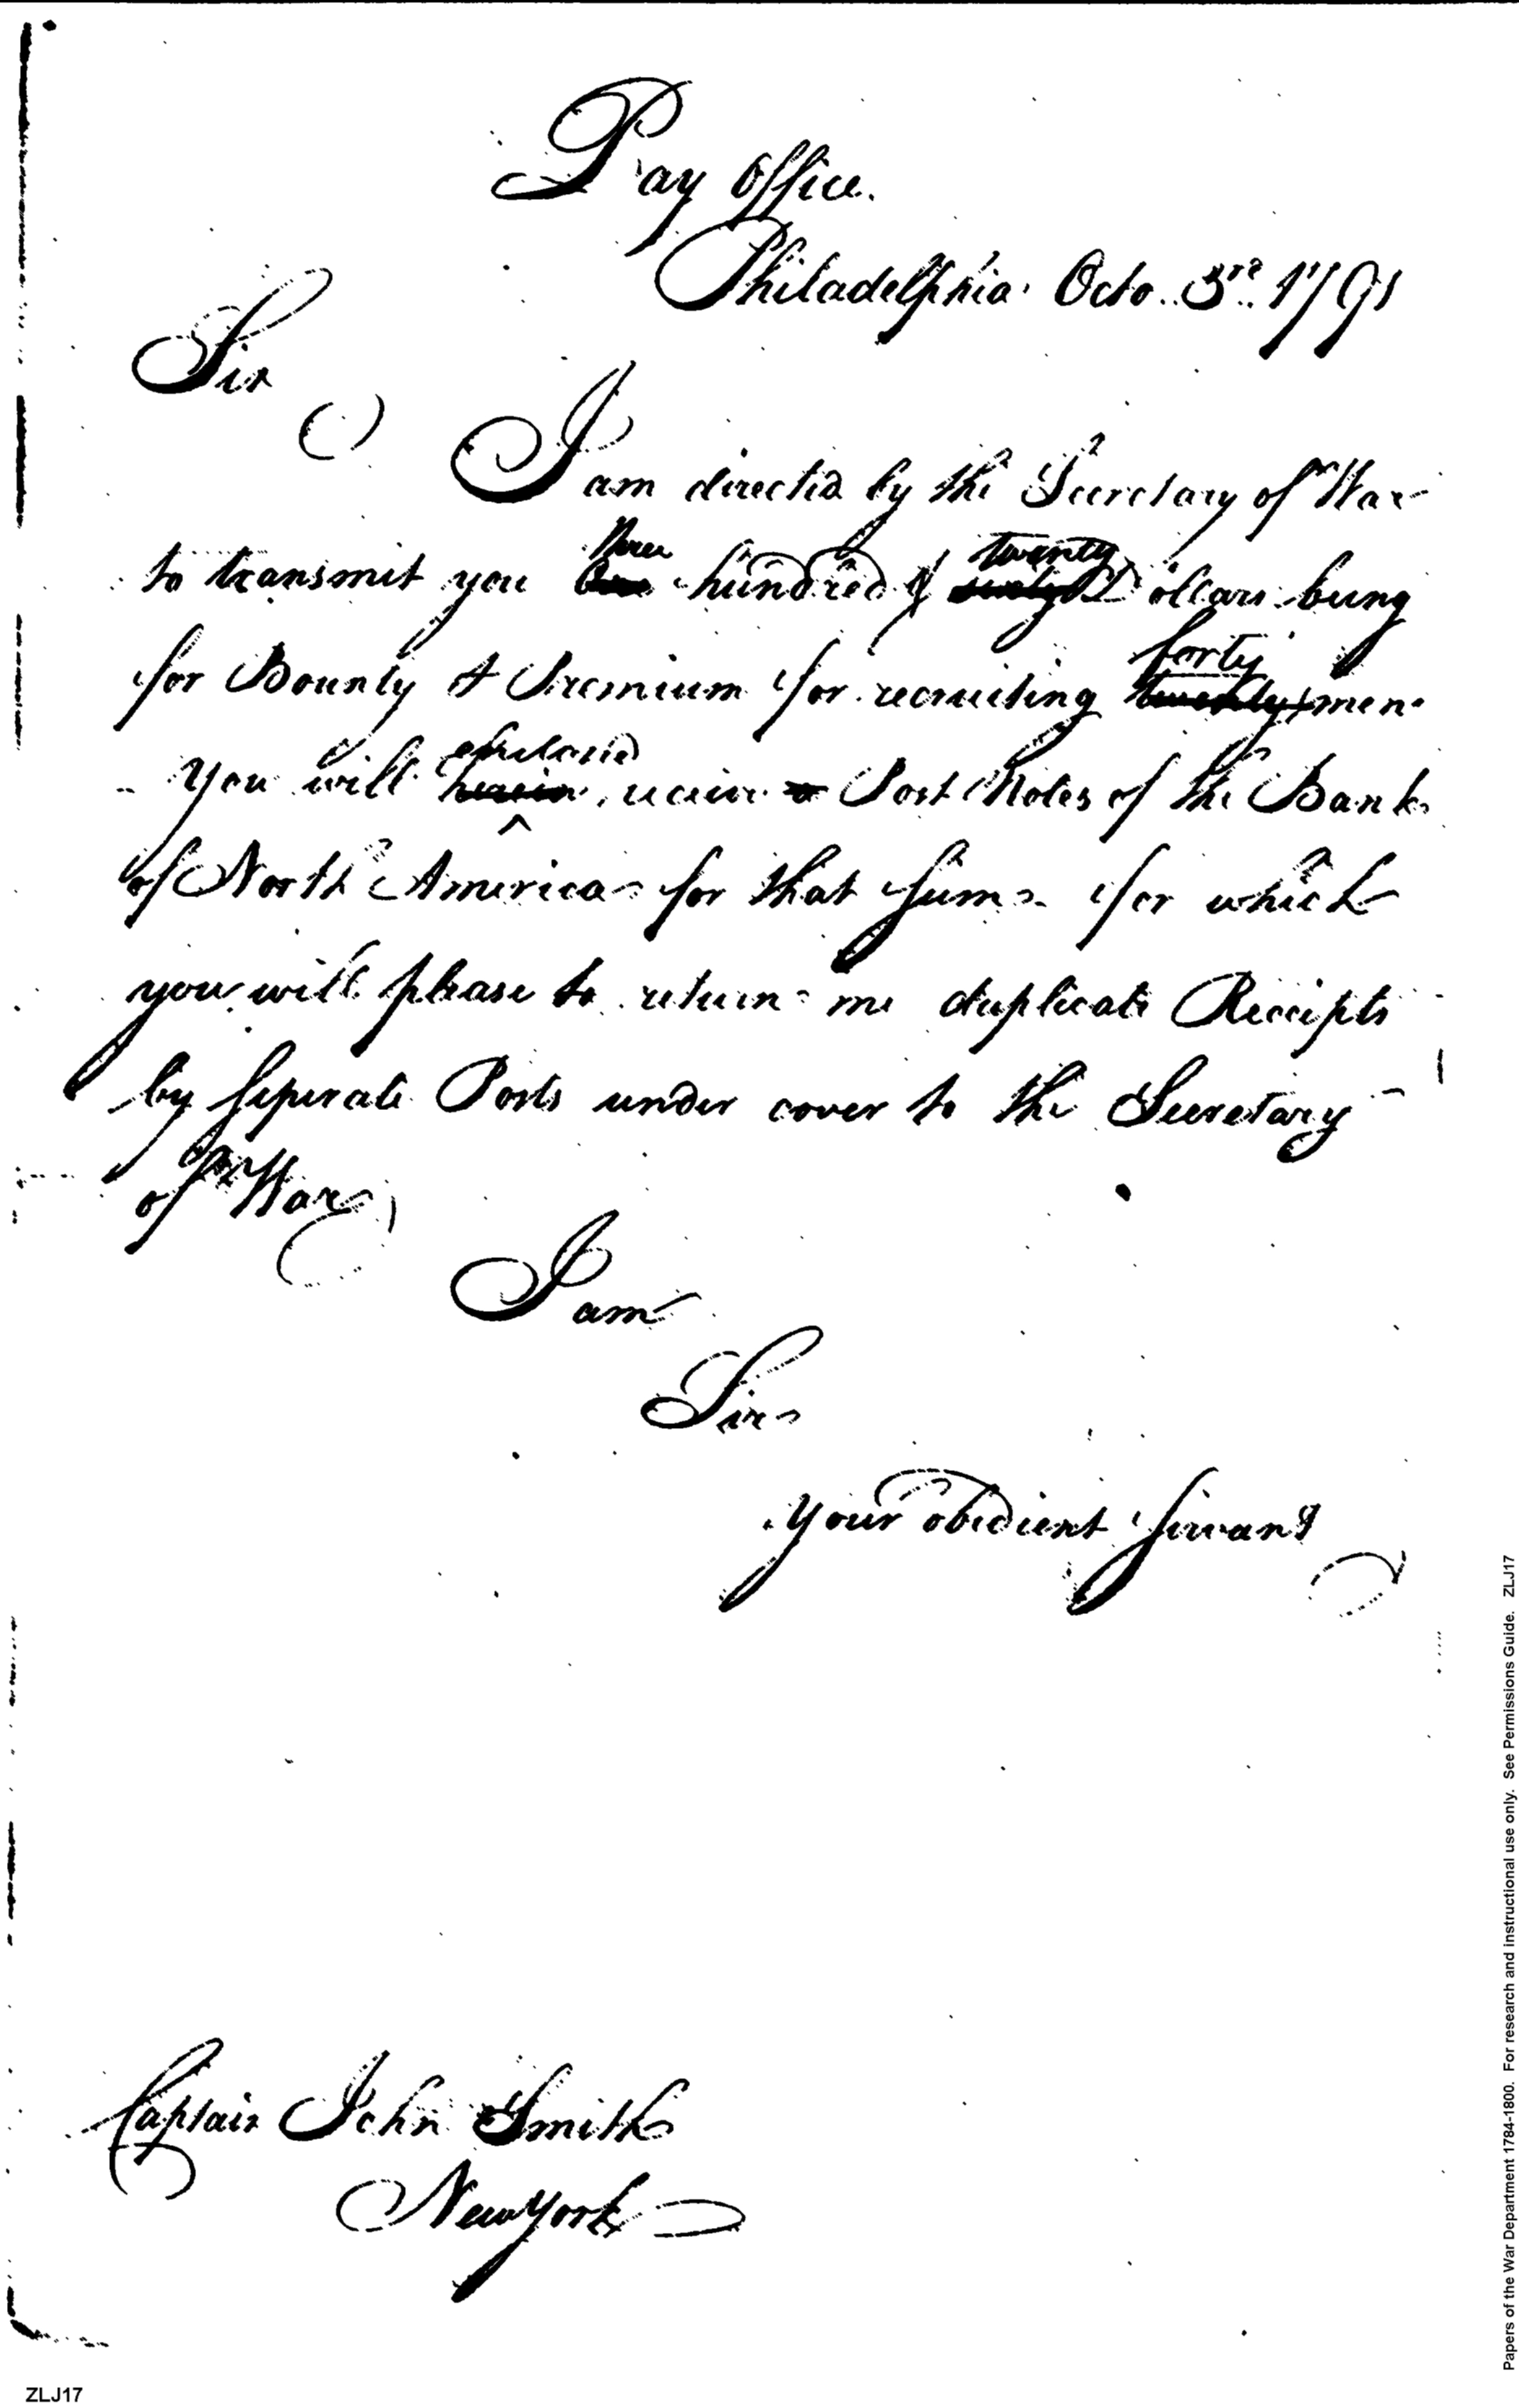 Pay Office.
Philadelphia Octo. 3rd. 1791
Sir
I am directed by the Secretary of War
three twenty
to transmit you One hundred & sixty Dollars being
forty
for Bounty & Premium for recruiting twenty men.
enclosed
You will herein, receive a Post Notes of the Bank
of North America for that sum for which
you will please to return me duplicate Receipts
by seperate Posts under cover to the Secretary
of War
I am
Sir
Your obedient servant
Captain John Smith
New York
ZLJ17
Papers of the War Department 1784-1800. For research and instructional use only. See Permissions Guide. ZLJ17